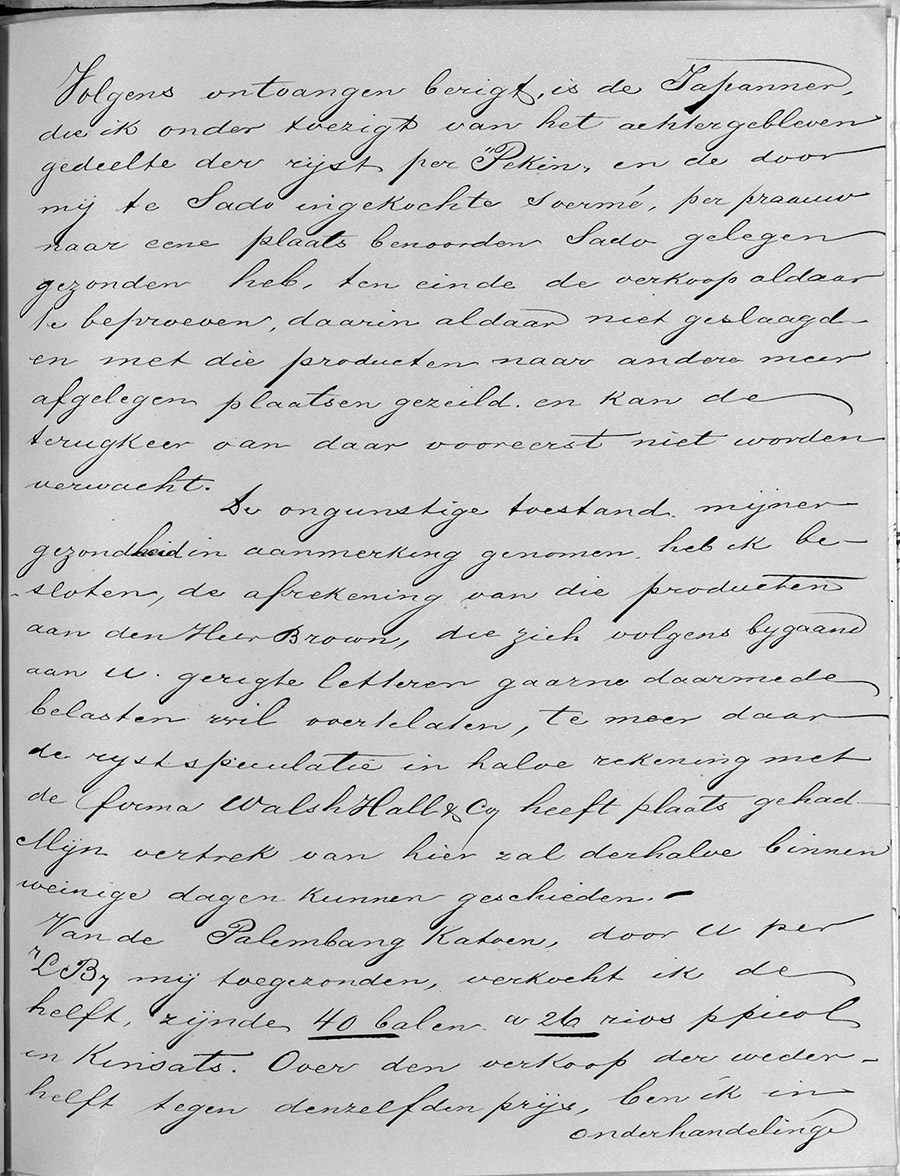 Volgens ontvangen berigt, is de Japanner,
die ik onder toezigt van het achtergebleven
gedeelte der rijst per "Pekin", en de door
mij te Sado ingekochte Soermé, per praauw
naar eene plaats benoorden Sado gelegen
gezonden heb, ten einde de verkoop aldaar
te beproeven, daarin aldaar niet geslaagd
en met die producten naar andere meer
afgelegen plaatsen gezeild. en kan de
terugkeer van daar vooreerst niet worden
verwacht.
De ongunstige toestand mijner
gezondheid in aanmerking genomen, heb ik be-
-sloten, de afrekening van die producten
aan den Heer Brown, die zich volgens bygaand
aan U. gerigte letteren gaarne daarmede
belasten wil overtelaten, te meer daar
de rystspeculatie in halve rekening met
de firma Walsh Hall & Cy heeft plaats gehad
Mijn vertrek van hier zal derhalve binnen
weinige dagen kunnen geschieden. -
Van de Palembang Katoen, door U per
"L B" mij toegezonden, verkocht ik de
helft, zijnde 40 balen a 26 rios ppicol
in Kinsats. Over den verkoop der weder-
helft tegen denzelfden prijs, ben ik in
onderhandeling